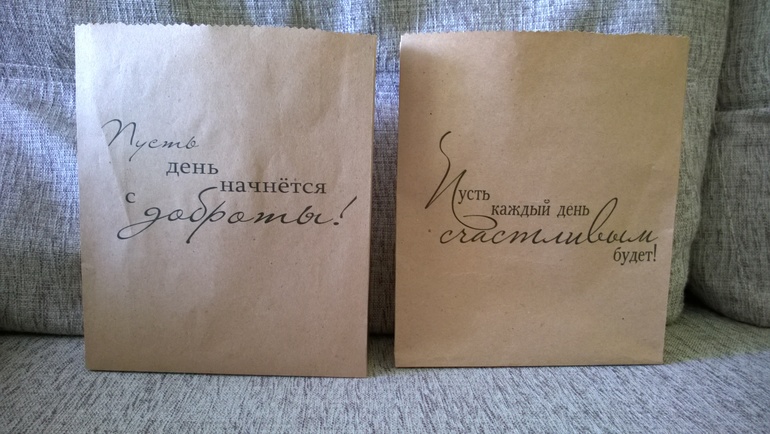 Пусть
день
начнётся
с
доброты!
Пусть
каждый день
счастливым
будет!